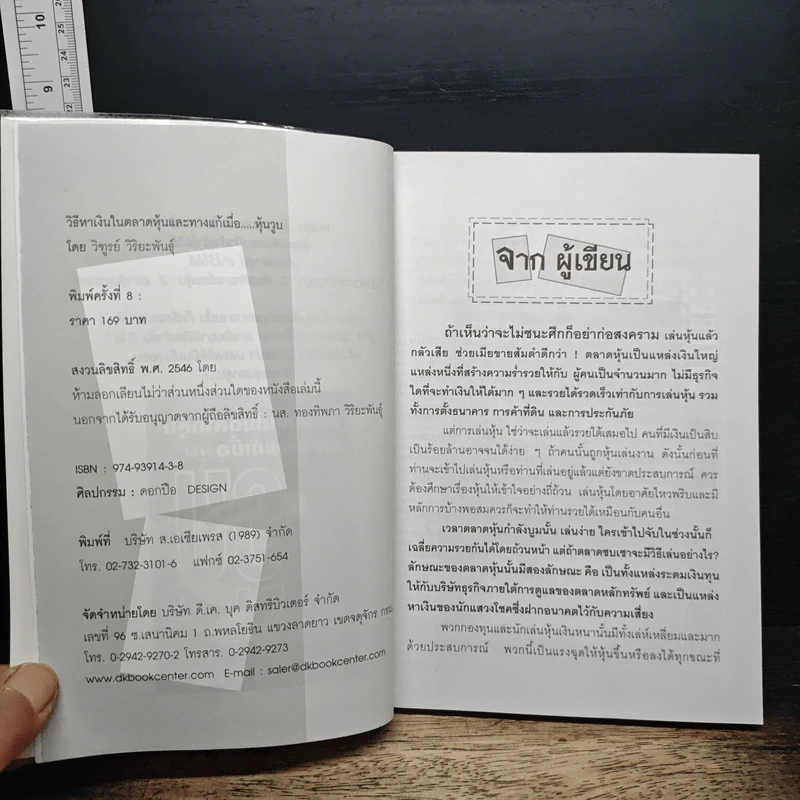 10
9
25
24
23
22
วิธีหาเงินในตลาดหุ้นและทางแก้เมื่อ.....หุ้นวูบ
โดย วิฑูรย์ วิริยะพันธุ์
พิมพ์ครั้งที่ 8 :
ราคา 169 บาท
สงวนลิขสิทธิ์ พ.ศ. 2546 โดย
ห้ามลอกเลียนไม่ว่าส่วนหนึ่งส่วนใดของหนังสือเล่มนี้
นอกจากได้รับอนุญาตจากผู้ถือลิขสิทธิ์ : นส. ทองทิพภา วิริยะพันธุ์
ISBN : 974-93914-3-8
ศิลปกรรม : ดอกปีอ DESIGN
พิมพ์ที่ บริษัท ส.เอเซียเพรส (1989) จำกัด
โทร. 02-732-3101-6 แฟกซ์ 02-3751-654
จัดจำหน่ายโดย บริษัท ดี.เค. บุค ดิสทริบิวเตอร์ จำกัด
เลขที่ 96 ซ.เสนานิคม 1 ถ.พหลโยธิน แขวงลาดยาว เขตจตุจักร
โทร. 0-2942-9270-2 โทรสาร. 0-2942-9273
www.dkbookcenter.com E-mail : saler@dkbookcenter.com
จาก ผู้เขียน
ถ้าเห็นว่าจะไม่ชนะศึกก็อย่าก่อสงคราม เล่นหุ้นแล้ว
กลัวเสีย ช่วยเมียขายส้มตำดีกว่า ! ตลาดหุ้นเป็นแหล่งเงินใหญ่
แหล่งหนึ่งที่สร้างความร่ำรวยให้กับ ผู้คนเป็นจำนวนมาก ไม่มีธุรกิจ
ใดที่จะทำเงินให้ได้มาก ๆ และรวยได้รวดเร็วเท่ากับการเล่นหุ้น รวม
ทั้งการตั้งธนาคาร การค้าที่ดิน และการประกันภัย
แต่การเล่นหุ้น ใช่ว่าจะเล่นแล้วรวยได้เสมอไป คนที่มีเงินเป็นสิบ
เป็นร้อยล้านอาจจนได้ง่าย ๆ ถ้าคนนั้นถูกหุ้นเล่นงาน ดังนั้นก่อนที่
ท่านจะเข้าไปเล่นหุ้นหรือท่านที่เล่นอยู่แล้วแต่ยังขาดประสบการณ์ ควร
ต้องศึกษาเรื่องหุ้นให้เข้าใจอย่างถี่ถ้วน เล่นหุ้นโดยอาศัยไหวพริบและมี
หลักการบ้างพอสมควรก็จะทำให้ท่านรวยได้เหมือนกับคนอื่น
เวลาตลาดหุ้นกำลังบูมนั้น เล่นง่าย ใครเข้าไปจับในช่วงนั้นก็
เฉลี่ยความรวยกันได้โดยถ้วนหน้า แต่ถ้าตลาดซบเซาจะมีวิธีเล่นอย่างไร?
ลักษณะของตลาดหุ้นนั้นมีสองลักษณะ คือ เป็นทั้งแหล่งระดมเงินทุน
ให้กับบริษัทธุรกิจภายใต้การดูแลของตลาดหลักทรัพย์ และเป็นแหล่ง
หาเงินของนักแสวงโชคซึ่งฝากอนาคตไว้กับความเสี่ยง
พวกกองทุนและนักเล่นหุ้นเงินหนานั้นมีทั้งเล่ห์เหลี่ยมและมาก
ด้วยประสบการณ์ พวกนี้เป็นแรงฉุดให้หุ้นขึ้นหรือลงได้ทุกขณะที่